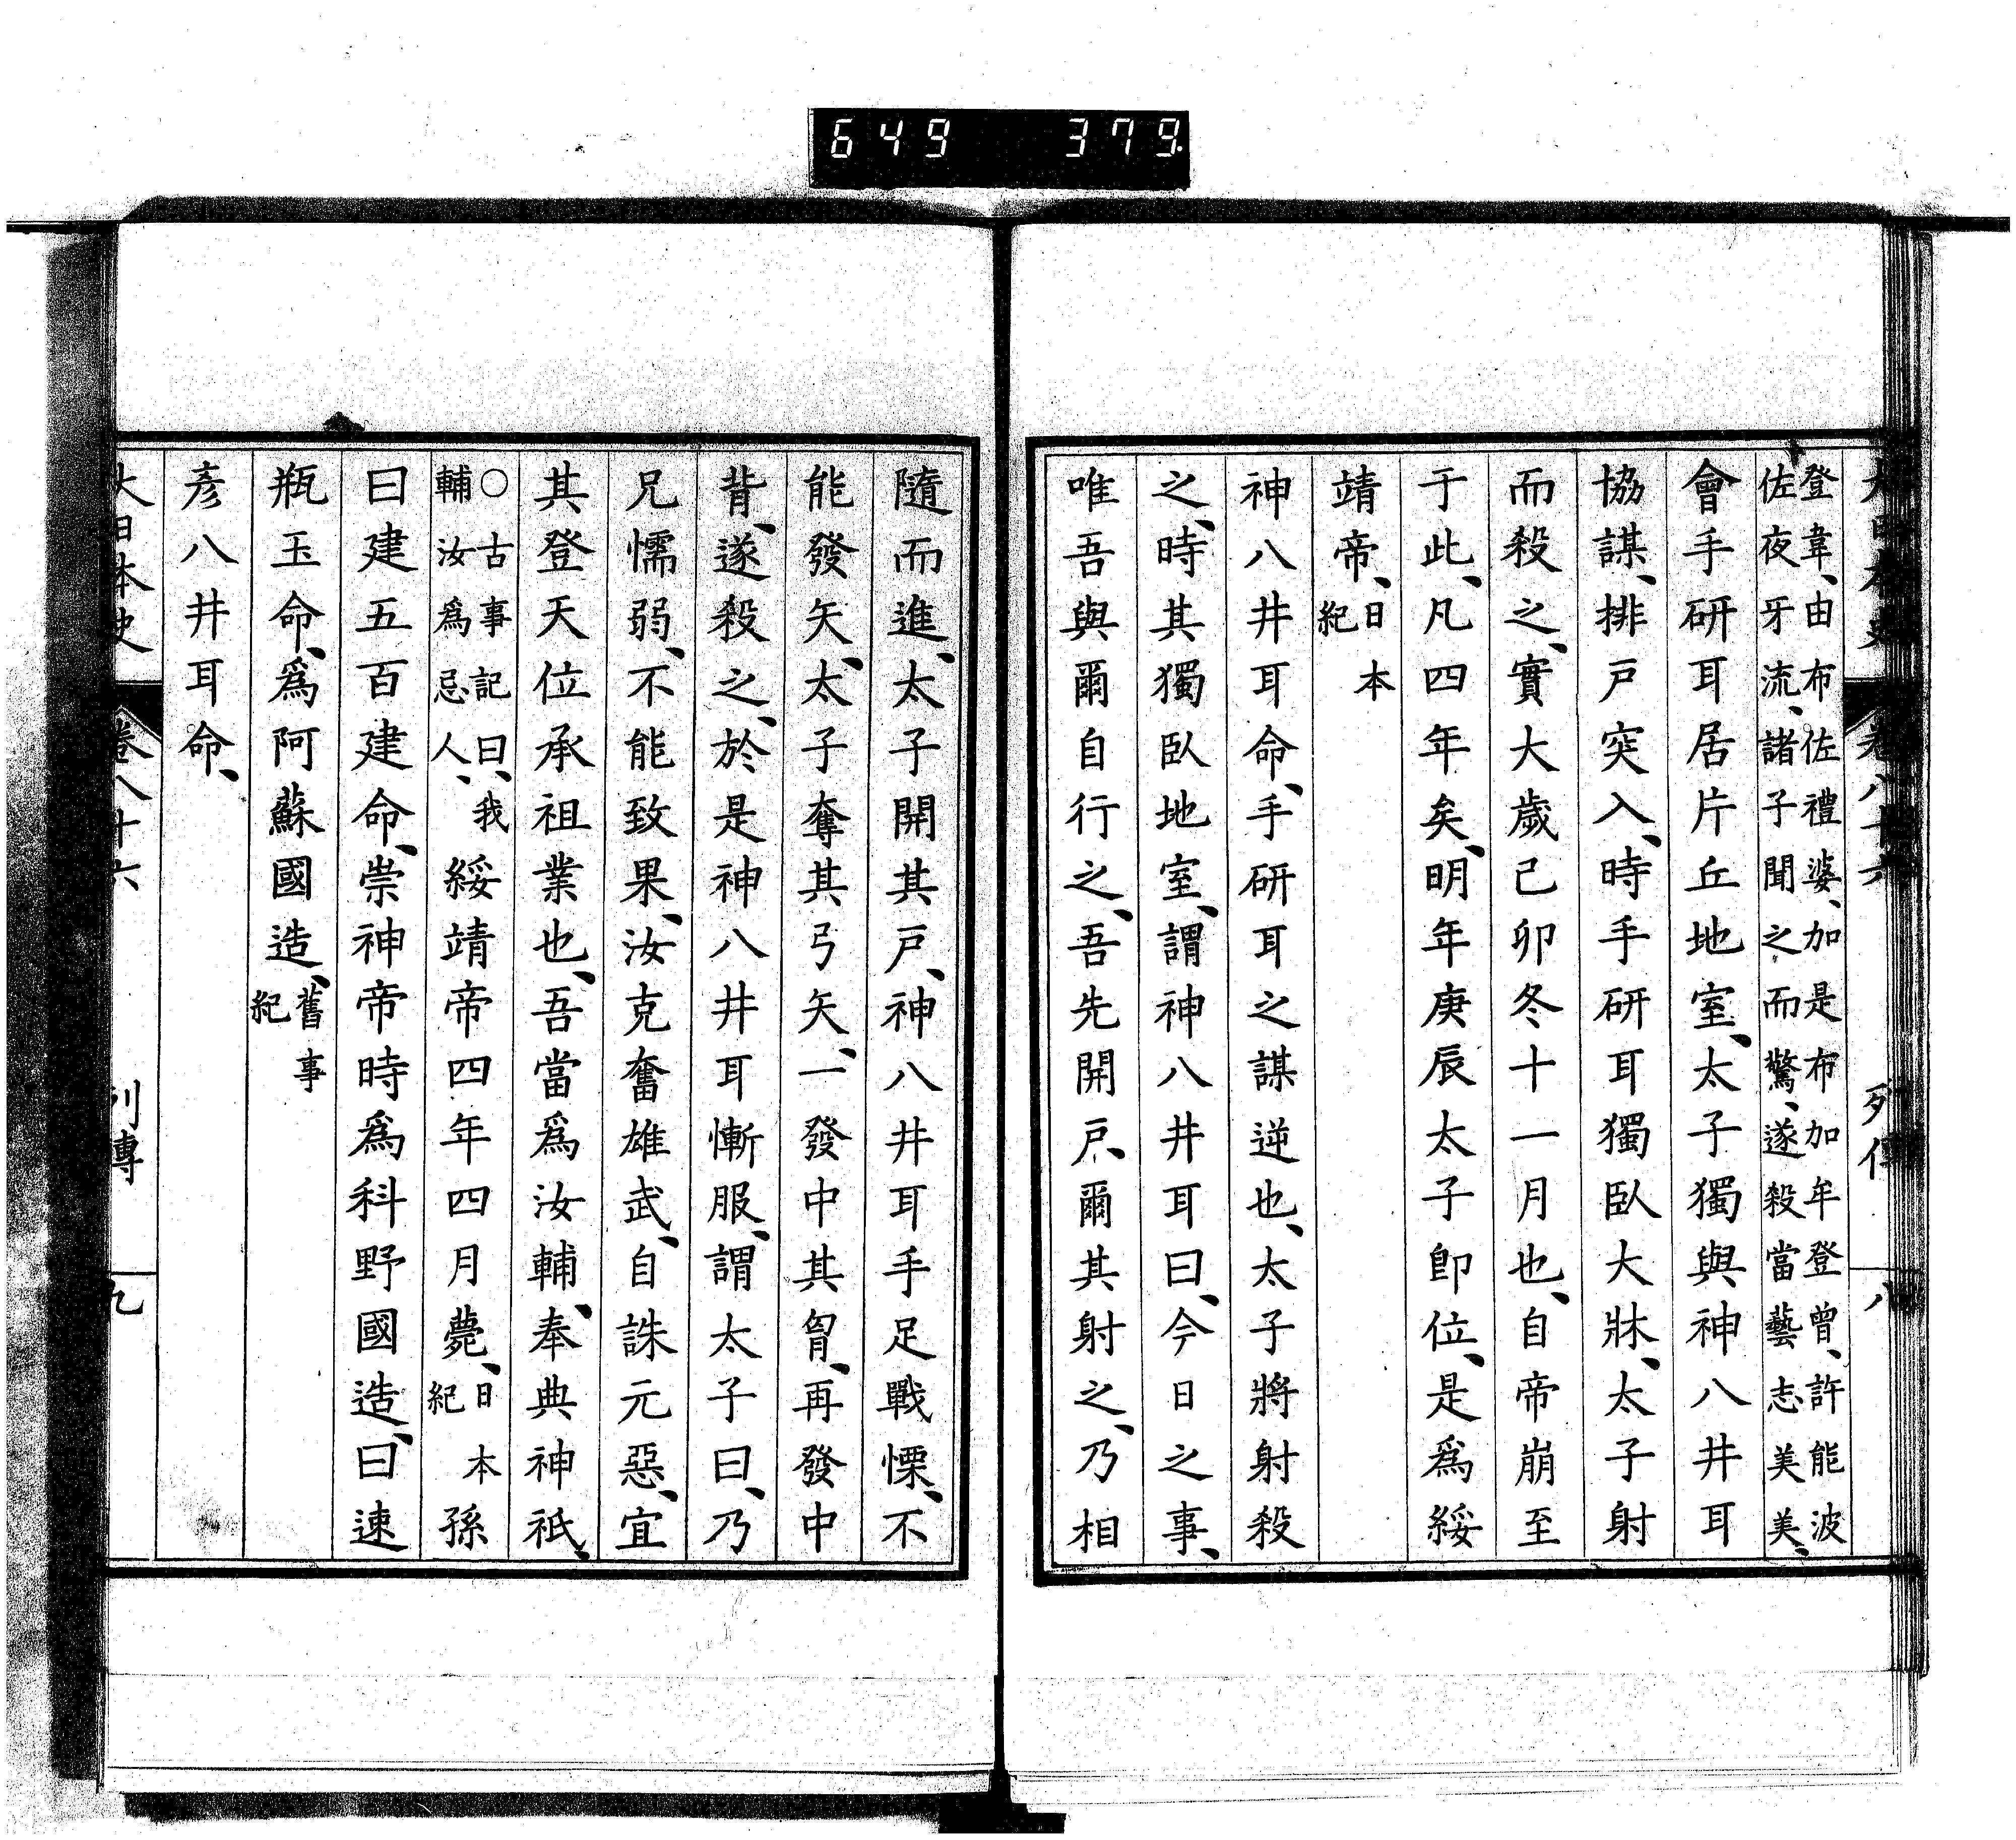 649 379.
大日本史 卷八十六 列傳 八
登韋、由布佐禮婆、加是布加牟登曾、許能波
佐夜牙流、諸子聞之而驚、遂殺當藝志美美、
會手研耳居片丘地室、太子獨與神八井耳
協謀、排戸突入、時手研耳獨臥大牀、太子射
而殺之、實大歲己卯冬十一月也、自帝崩至
于此、凡四年矣、明年庚辰太子卽位、是爲綏
靖帝、日本紀
神八井耳命、手研耳之謀逆也、太子將射殺
之、時其獨臥地室、謂神八井耳曰、今日之事、
唯吾與爾自行之、吾先開戸、爾其射之、乃相
隨而進、太子開其戸、神八井耳手足戰慄、不
能發矢、太子奪其弓矢、一發中其胷、再發中
背、遂殺之、於是神八井耳慚服、謂太子曰、乃
兄懦弱、不能致果、汝克奮雄武、自誅元惡、宜
其登天位承祖業也、吾當爲汝輔、奉典神祇、
○古事記曰、我輔汝爲忌人、綏靖帝四年四月薨、日本紀孫
曰建五百建命、崇神帝時爲科野國造、曰速
瓶玉命、爲阿蘇國造、舊事紀
彥八井耳命、
大日本史 卷八十六 列傳 九